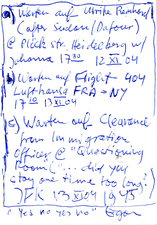 a) Warten auf Ulrike Reinhard
(Cafes Sudan/Dafour)
@ Plöck str. Heidelberg w/
Johanna 17 30 12 XI 04
b) Warten auf Flight 404
Lufthansa FRA → NY
17 10 13 XI 04
c) Warten auf Clearance
from Immigration
Officer @ "Questioning
Room (" ... did you
stay one time too long?)
JFK 13 XI 04 1945
"Yes no yes no"